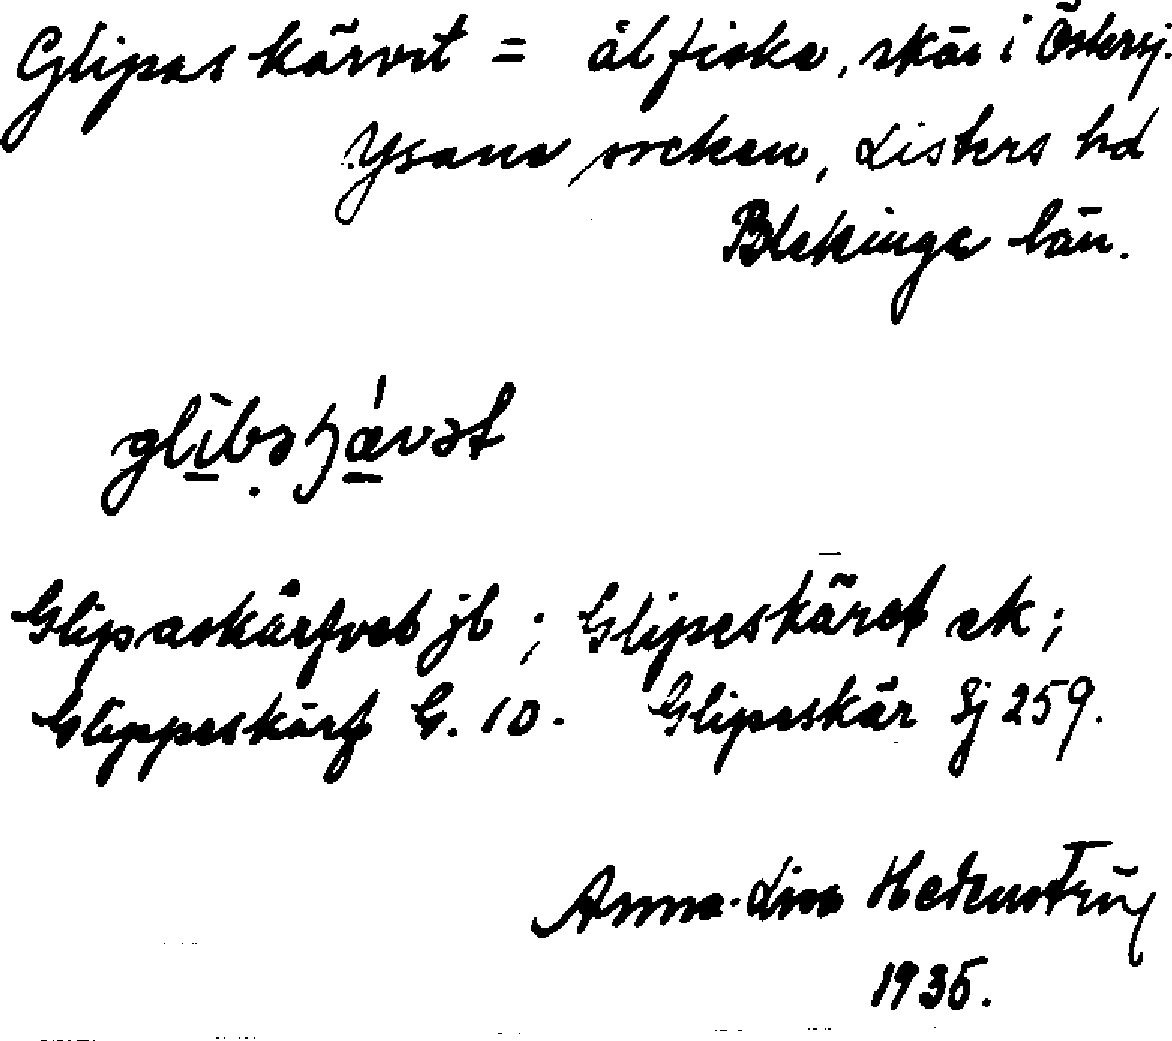 Glipaskärvet = ålfiske, skär i Östersj.
Ysane socken, Listers hd
Blekinge län.
Glipaskärfvet jb ; Glipeskäret ek ;
Glippeskärf G. 10. Glipeskär Sj 259.
Anna-Lisa
1935.